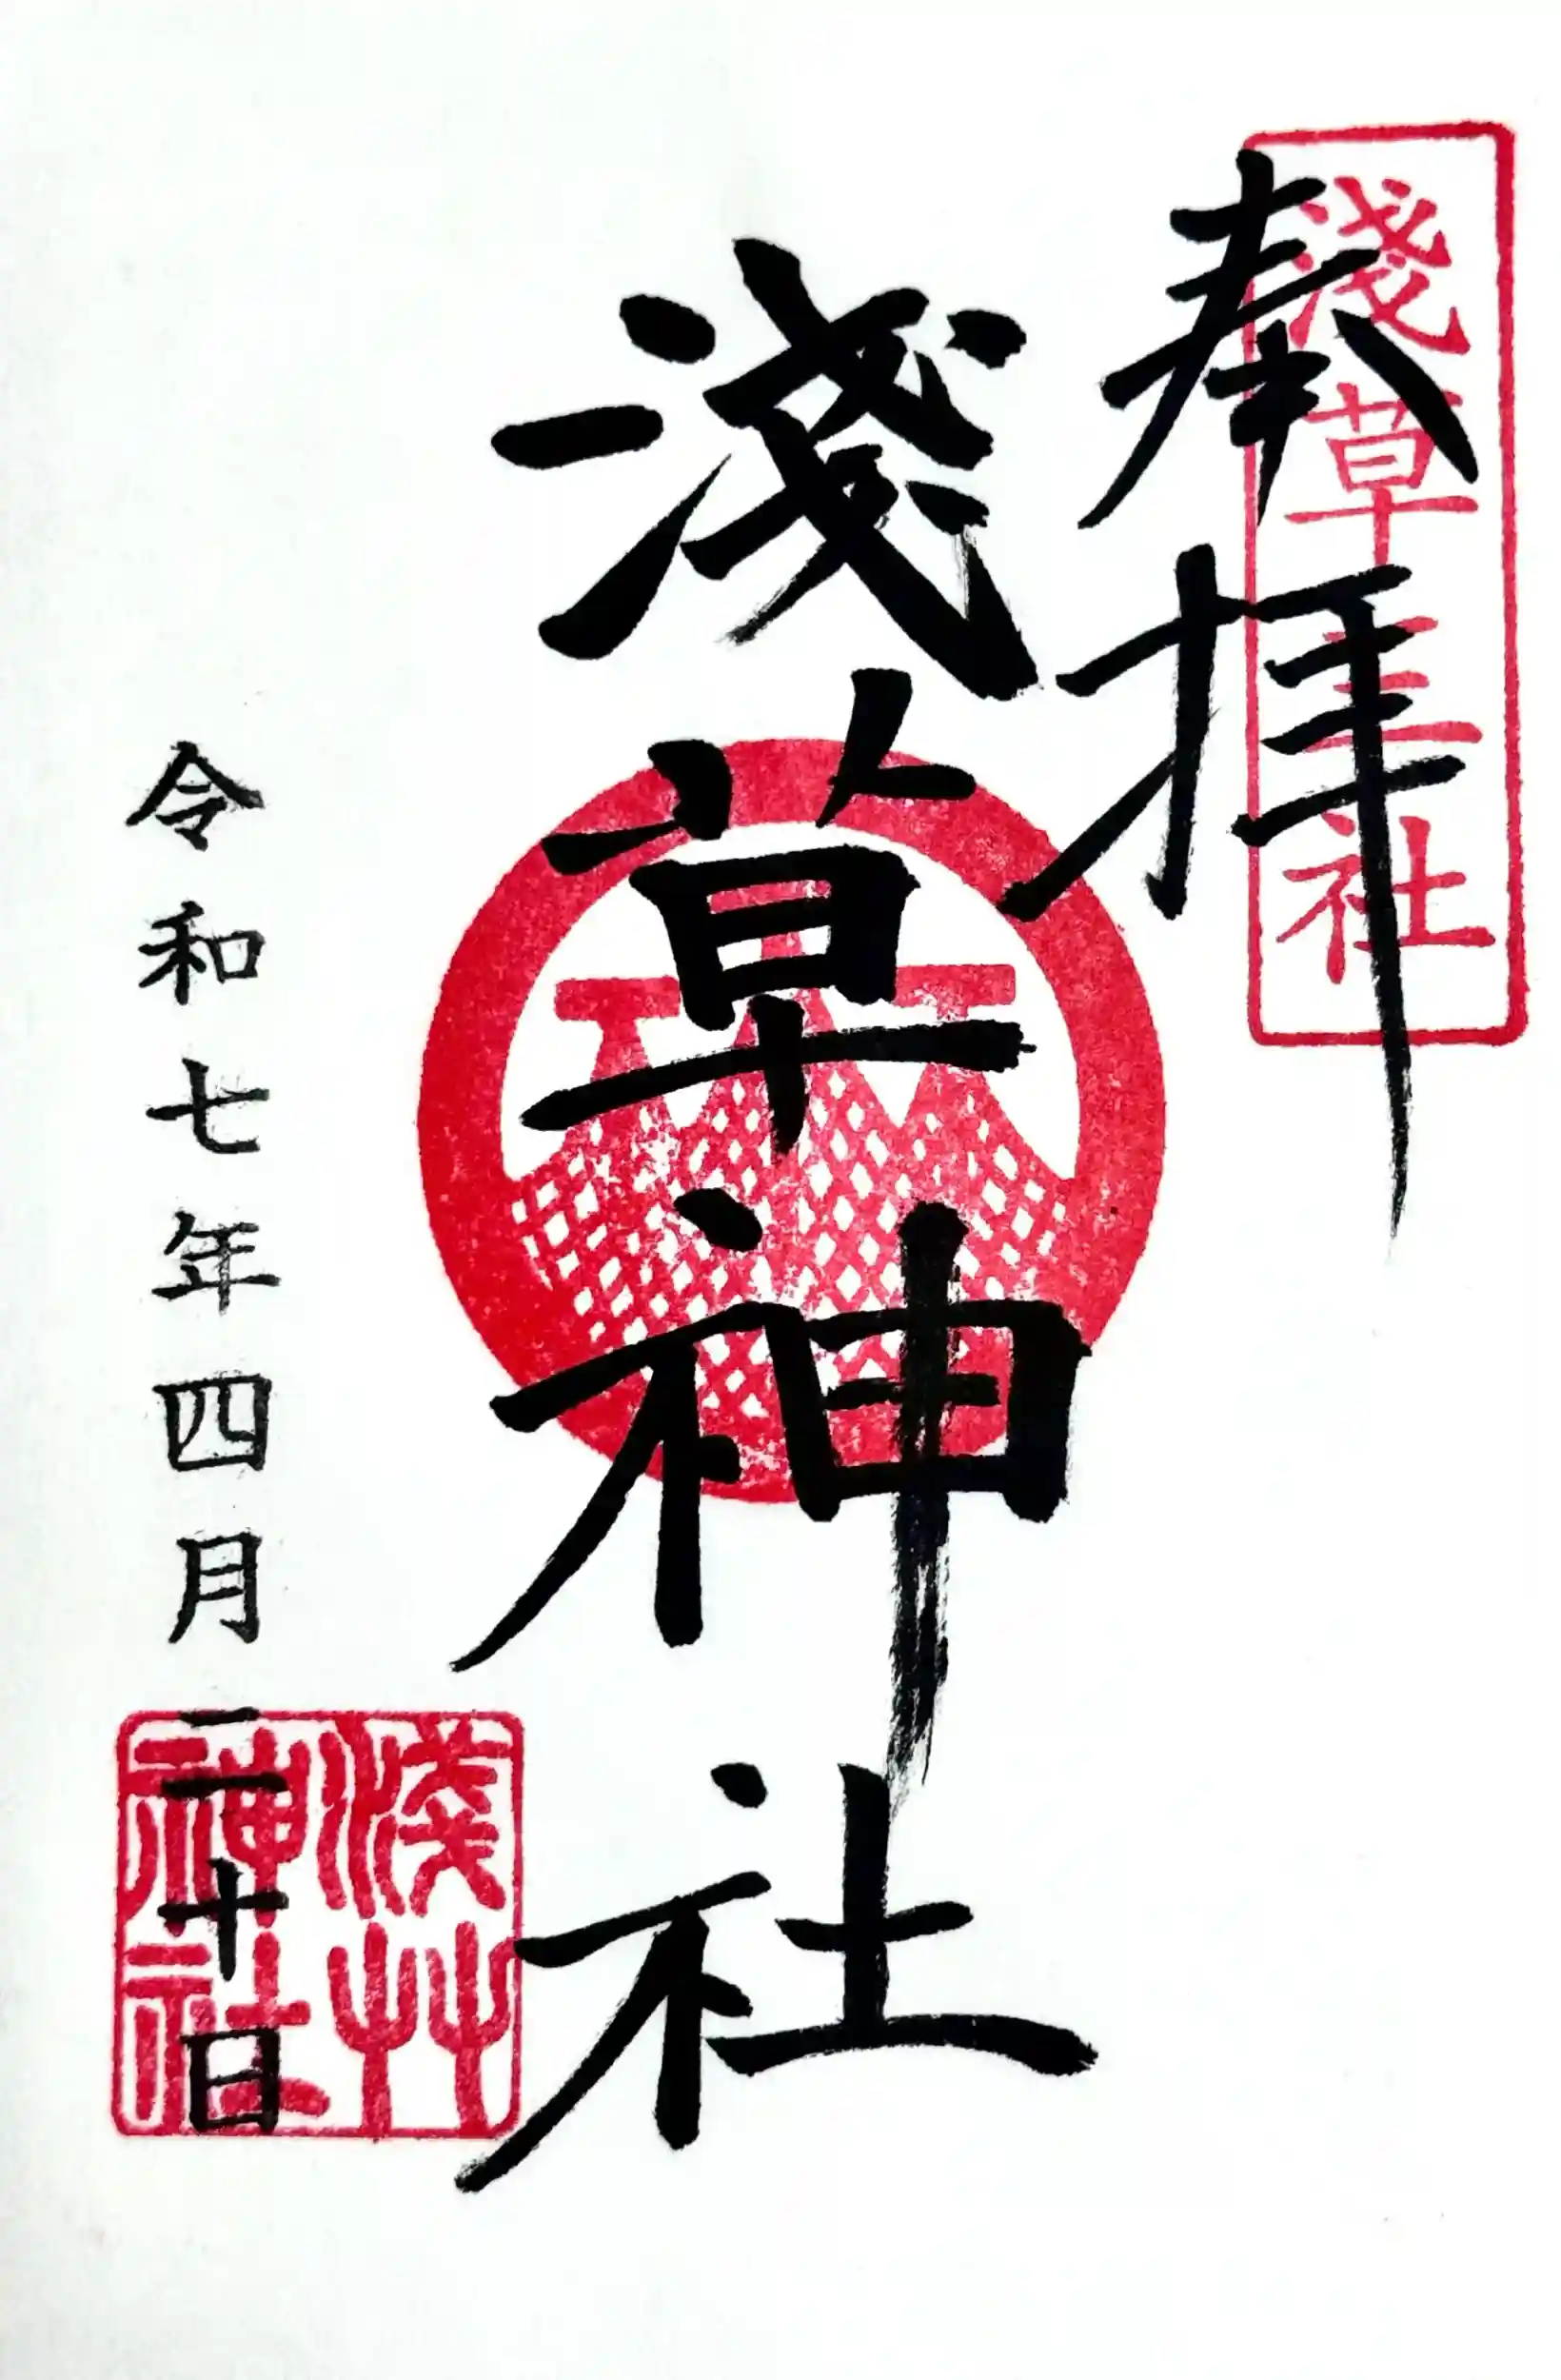 淺草三社
奉拝
淺草神社
令和七年四月二十日
淺艸
神社